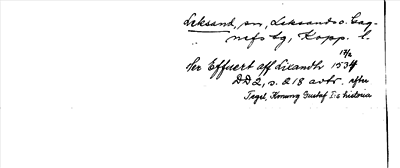 Leksand, sn, Leksands o. Gag-
nefs tg, Kopp. l.
Her Effuert aff Lixandh 17/2 1534
DD 2, s. 218 avtr. efter
Tegel, Konung Gustaf I:s historia